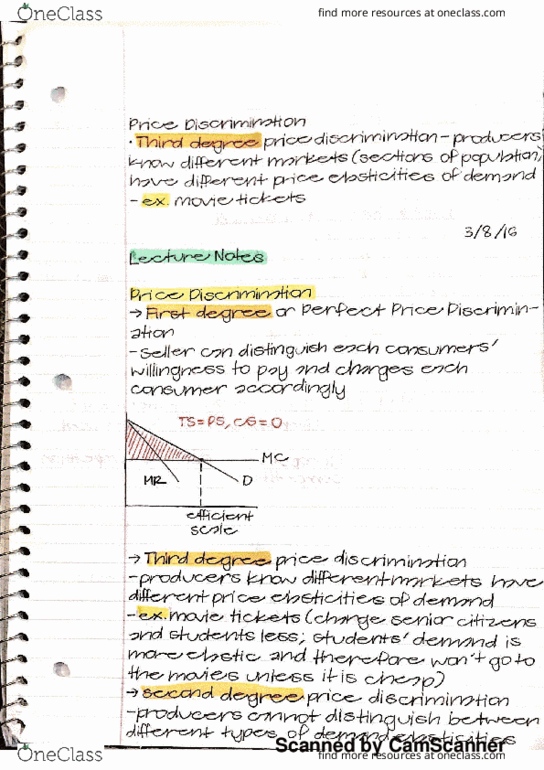 OneClass
find more resources at oneclass.com
Price Discrimination
· Third degree price discrimination - producers
know different markets (sections of population)
have different price elasticities of demand
- ex. movie tickets
3/8/16
Lecture Notes
Price Discrimination
→ First degree or Perfect Price Discrimin-
ation
- seller can distinguish each consumers'
willingness to pay and charges each
consumer accordingly
TS=PS, CS=0
MC
MR
D
efficient
scale
→ Third degree price discrimination
- producers know different markets have
different price elasticities of demand
- ex. movie tickets (charge senior citizens
and students less; students' demand is
more elastic and therefore won't go to
the movies unless it is cheap)
→ second degree price discrimination
- producers cannot distinguish between
different types of demand elasticities
Scanned by CamScanner
OneClass
find more resources at oneclass.com